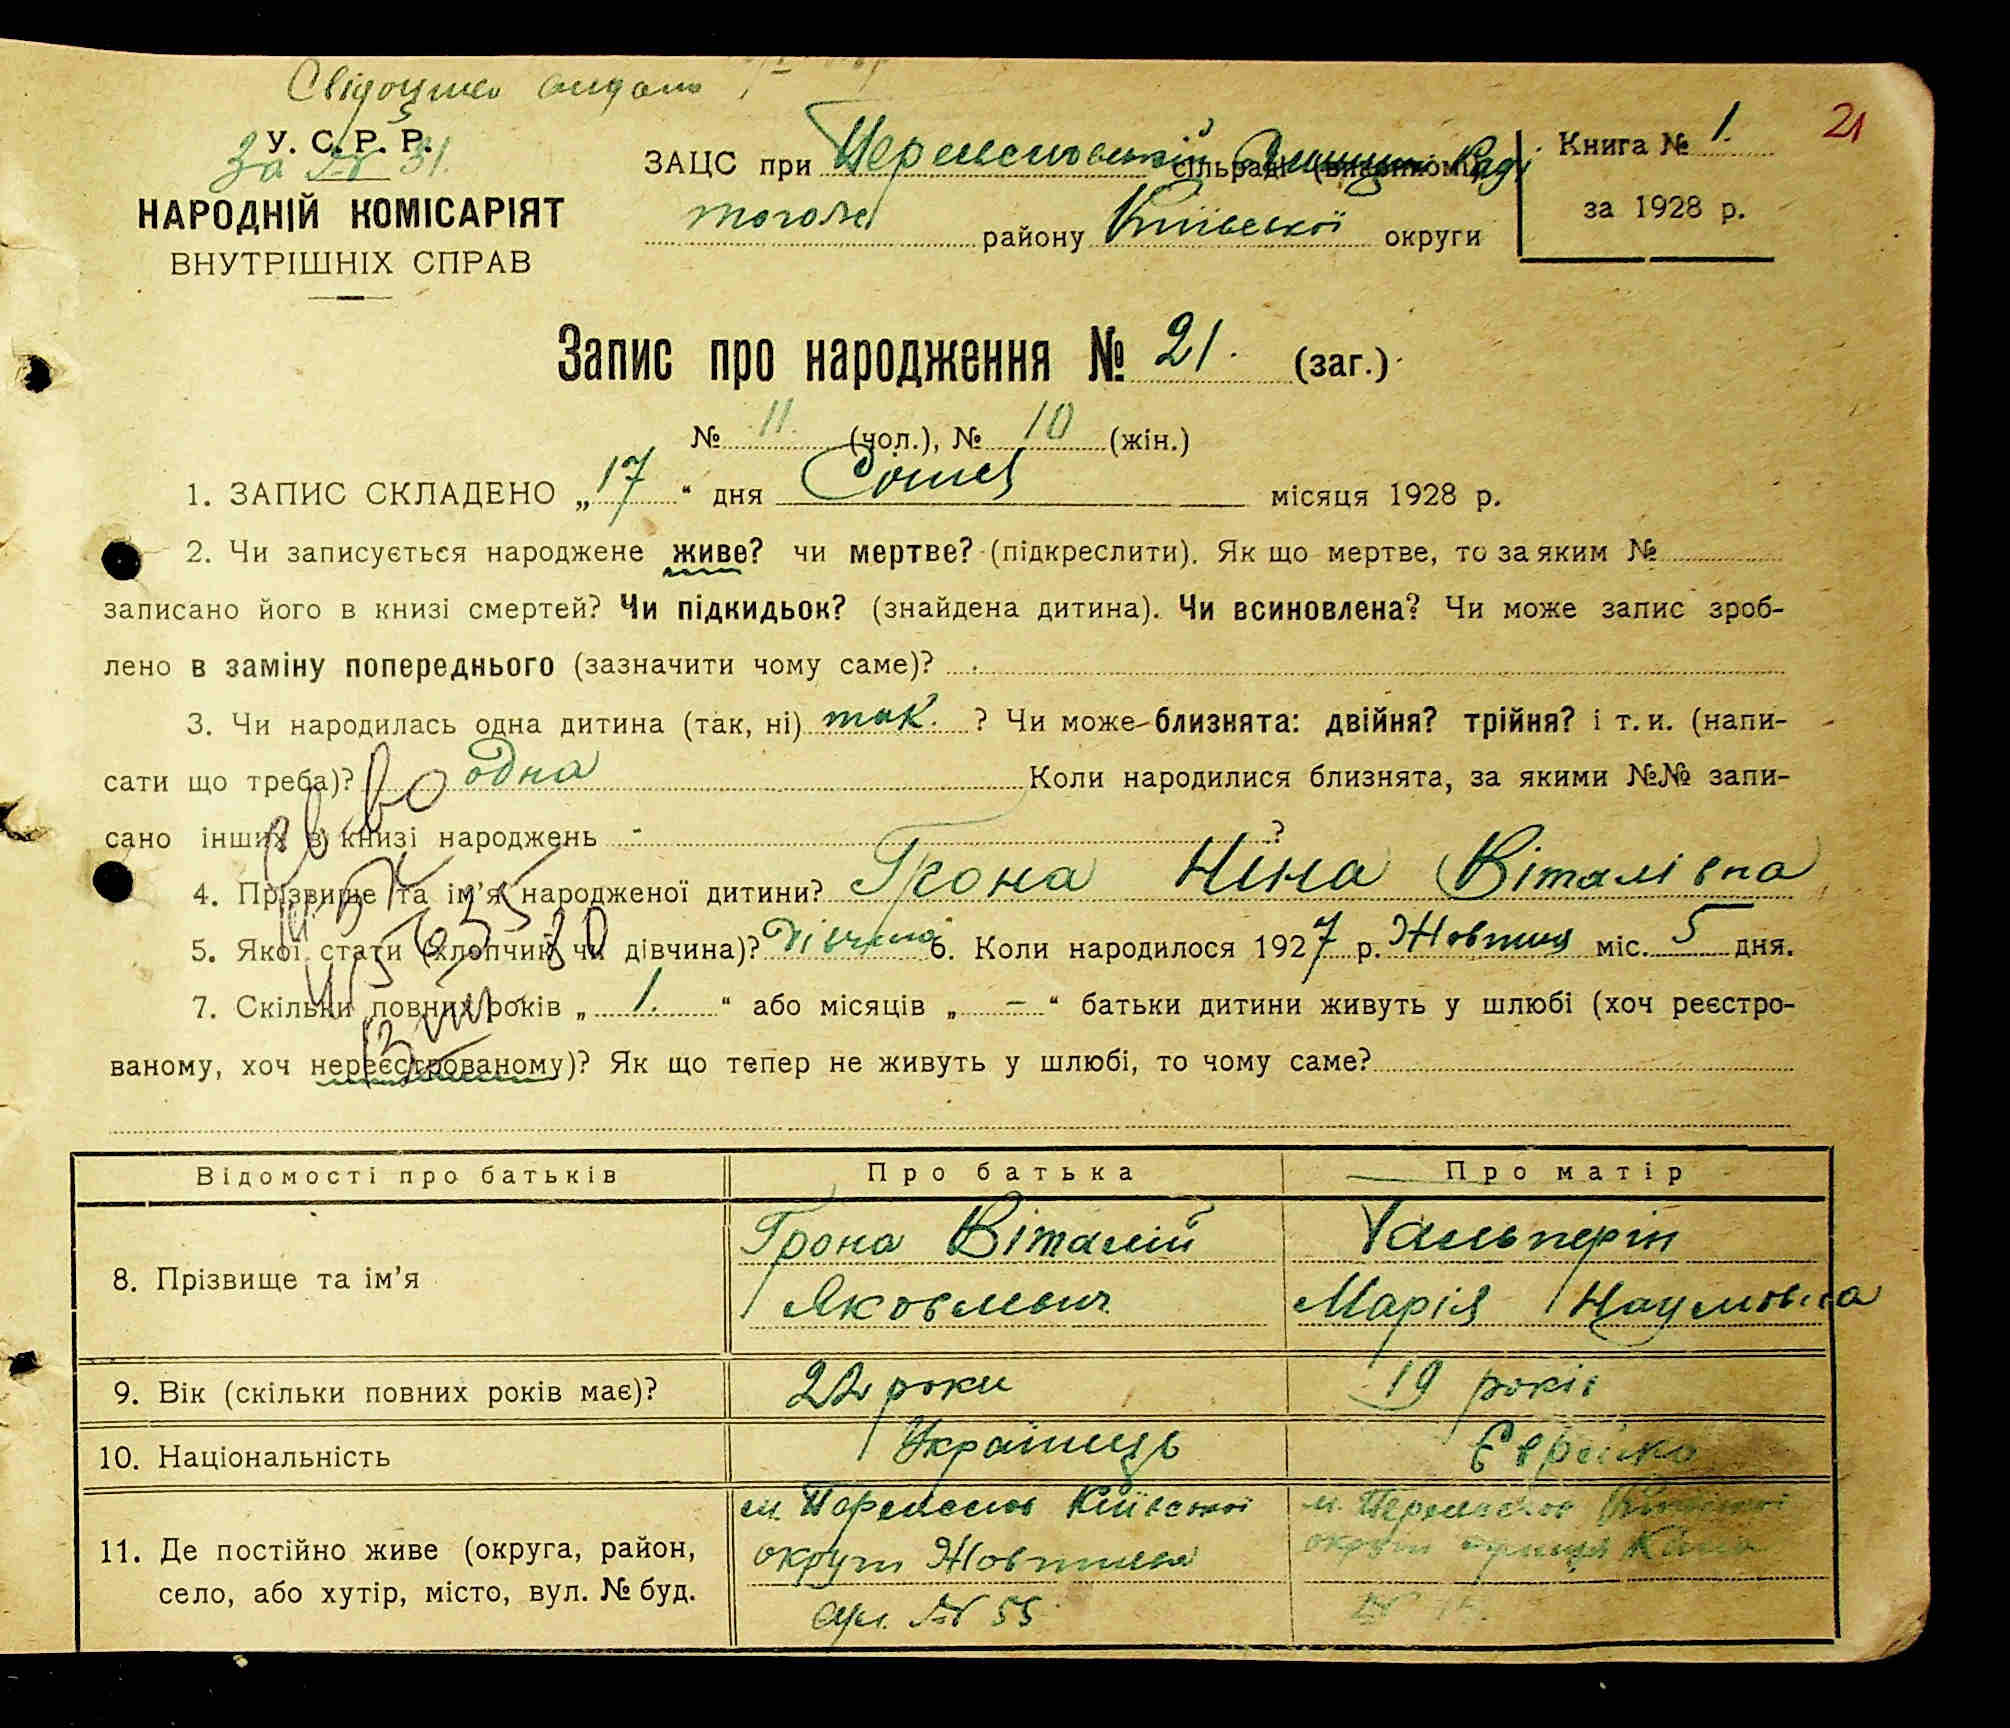 Свідоцтво видано
У. С. Р. Р.
За № 31.
НАРОДНІЙ КОМІСАРІЯТ
ВНУТРІШНІХ СПРАВ
ЗАЦС при Переяславській сільраді
того ж району Київської округи
Книга № 1.
за 1928 р.
21
Запис про народження № 21. (заг.)
№ 11. (чол.), № 10 (жін.)
1. ЗАПИС СКЛАДЕНО „17“ дня Січня місяця 1928 р.
2. Чи записується народжене живе? чи мертве? (підкреслити). Як що мертве, то за яким №
записано його в книзі смертей? Чи підкидьок? (знайдена дитина). Чи всиновлена? Чи може запис зроб-
лено в заміну попереднього (зазначити чому саме)?
3. Чи народилась одна дитина (так, ні) так. ? Чи може близнята: двійня? трійня? і т. и. (напи-
сати що треба)? одна Коли народилися близнята, за якими №№ запи-
сано інших в книзі народжень - ?
4. Прізвище та ім’я народженої дитини? Грона Ніна Віталівна
5. Якої стати (хлопчик чи дівчина)? Дівчина 6. Коли народилося 1927 р. Жовтня міс. 5 дня.
7. Скільки повних років „ 1. “ або місяців „ – “ батьки дитини живуть у шлюбі (хоч реєстро-
ваному, хоч нереєстрованому)? Як що тепер не живуть у шлюбі, то чому саме?
Відомості про батьків Про батька Про матір
8. Прізвище та ім’я
Грона Віталій
Яковлевич
Гальперін
Марія Наумовна
9. Вік (скільки повних років має)? 22 роки 19 років
10. Національність Українець Єврейка
11. Де постійно живе (округа, район,
село, або хутір, місто, вул. № буд.
м. Переяслов Київської
округи Жовтнева
№ 55
м. Переяслов Київської
округи вулиця